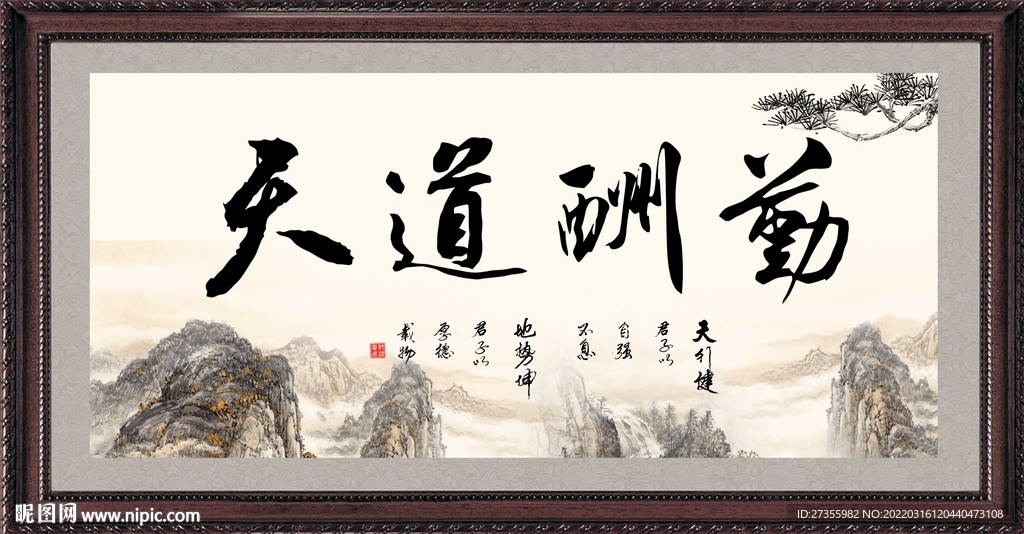 天道酬勤
天行健
君子以
自强
不息
地势坤
君子以
厚德
载物
昵图网 www.nipic.com
ID:27355982 NO:20220316120440473108